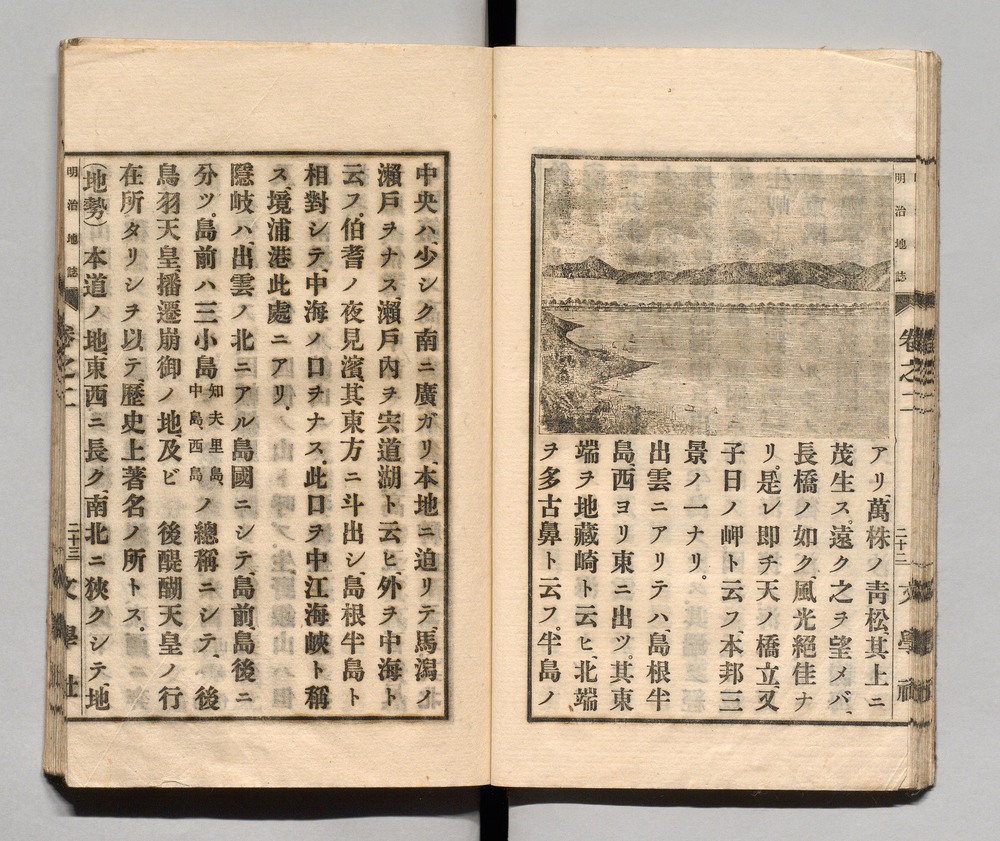 明治地誌 卷之二 二十二 文學社
アリ、萬株ノ靑松、其上ニ
茂生ス。遠ク之ヲ望メバ、
長橋ノ如ク、風光絕佳ナ
リ。是レ卽チ天ノ橋立、又
子日ノ岬ト云フ、本邦三
景ノ一ナリ。
出雲ニアリテハ島根半
島、西ヨリ東ニ出ヅ。其東
端ヲ地藏崎ト云ヒ、北端
ヲ多古鼻ト云フ。半島ノ
中央ハ、少シク南ニ廣ガリ、本地ニ迫リテ、馬潟ノ
瀨戶ヲナス、瀨戶內ヲ宍道湖ト云ヒ、外ヲ中海ト
云フ。伯耆ノ夜見濱、其東方ニ斗出シ、島根半島ト
相對シテ、中海ノ口ヲナス。此口ヲ中江海峽ト稱
ス、境浦港此處ニアリ。
隱岐ハ、出雲ノ北ニアル島國ニシテ、島前、島後ニ
分ツ。島前ハ三小島知夫里島、中島、西島ノ總稱ニシテ、後
鳥羽天皇、播遷崩御ノ地、及ビ 後醍醐天皇ノ行
在所タリシヲ以テ、歷史上著名ノ所トス。
(地勢) 本道ノ地、東西ニ長ク、南北ニ狹クシテ、地
明治地誌 卷之二 二十三 文學社